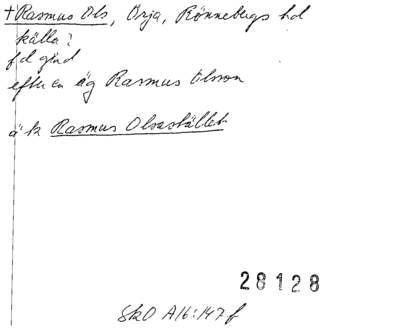 †Rasmus Ols, Örja, Rönnebergs hd
källa?
fd gård
efter en äg Rasmus Olsson
äk Rasmus Olsastället
28128
SkO A16:147f